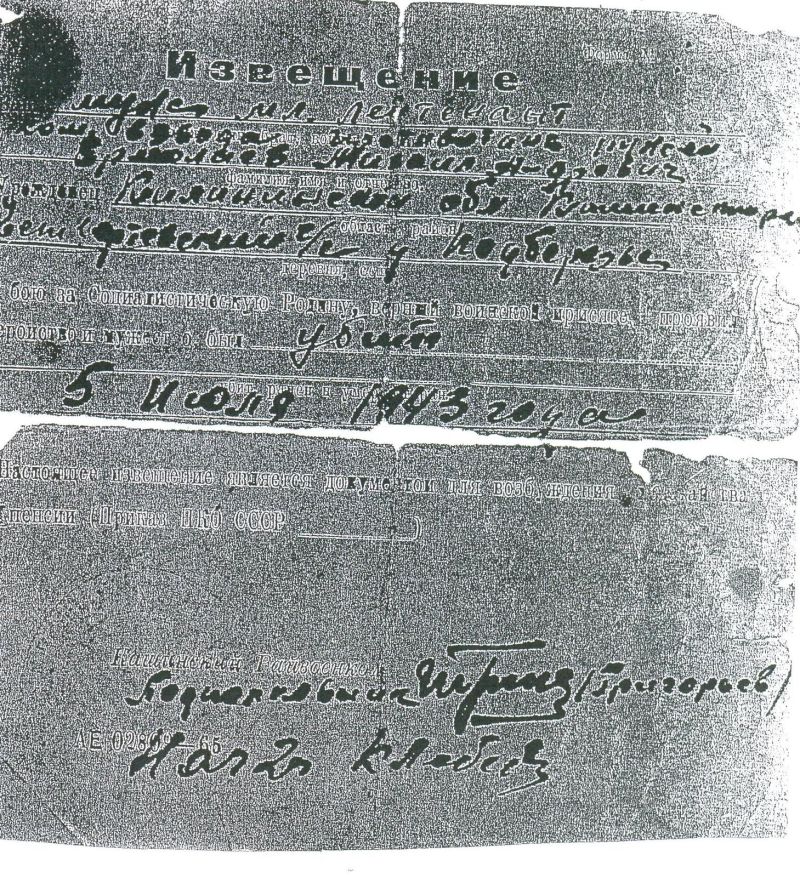 Форма №
Извещение
муж мл. лейтенант
ком. взвода
Ермолаев Михаил
фамилия, имя и отчество
Уроженец Калининская обл
область, район
с/с д Подберезье
бою за Социалистическую Родину, верный воинской присяге, прояв
геройство и мужество, был убит
5 Июля 1943 года
Настоящее извещение является документом для возбуждения
пенсии (Приказ НКО СССР )
Кашинский Райвоенком
Подполковник (Григорьев)
АЕ 02809—65
Нач 2ч